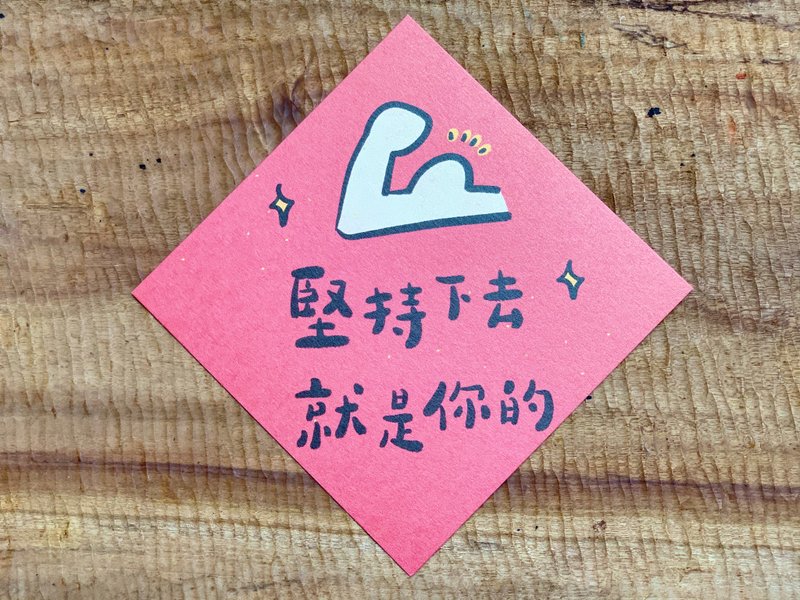 堅持下去
就是你的